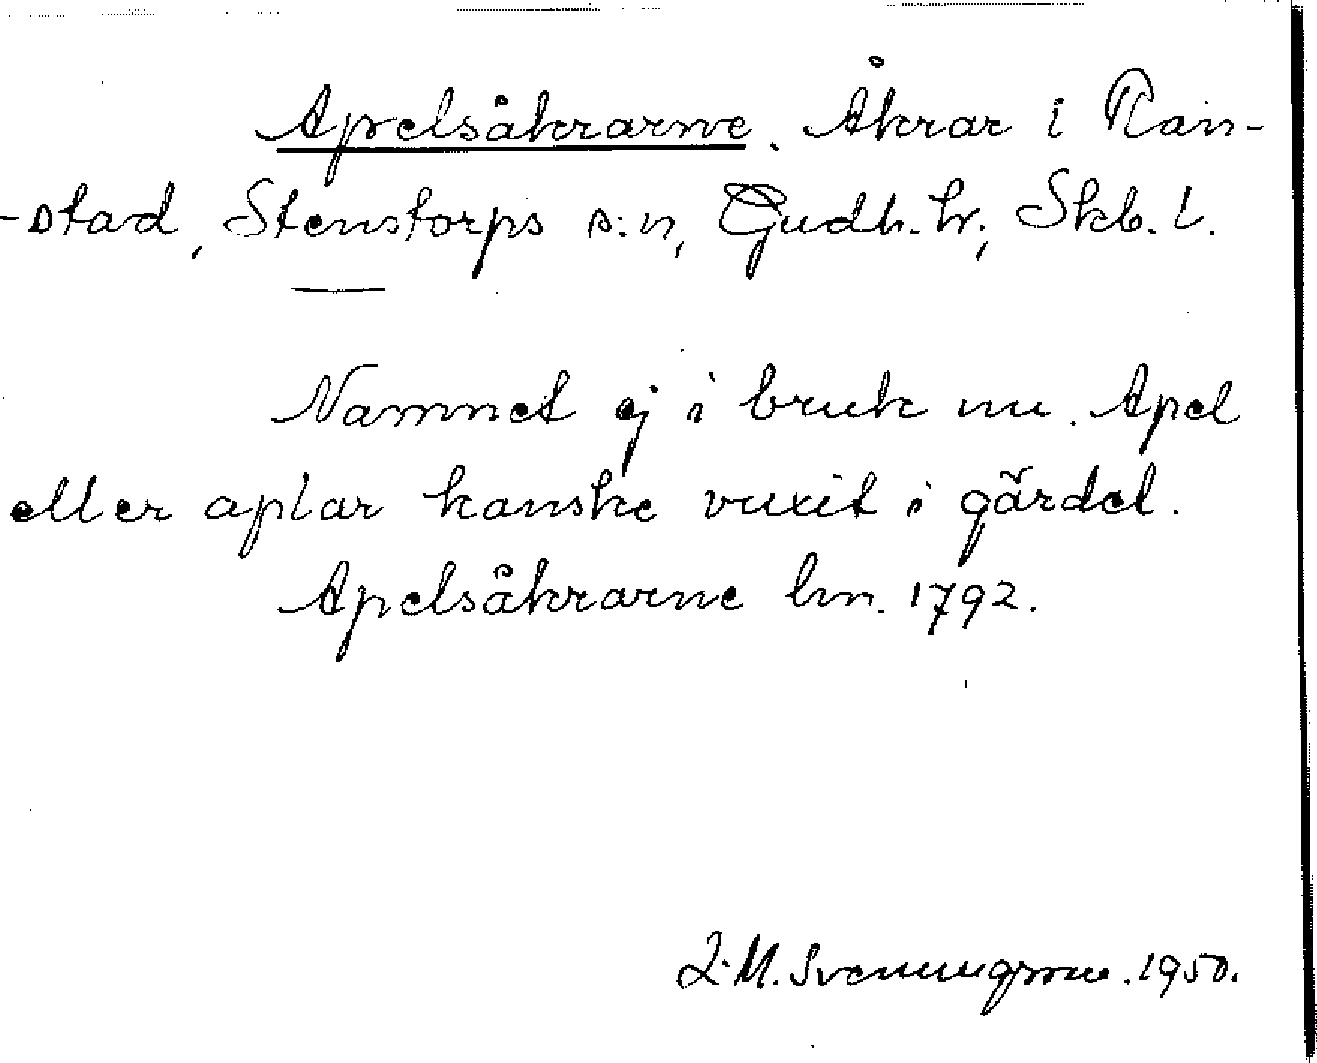 Apelsåkrarne. Åkrar i Ran-
-stad, Stenstorps s:n, Gudh. hr., Skb. l.
Namnet ej i bruk nu. Apel
eller aplar kanske vuxit i gärdet.
Apelsåkrarne hm. 1792.
1950.